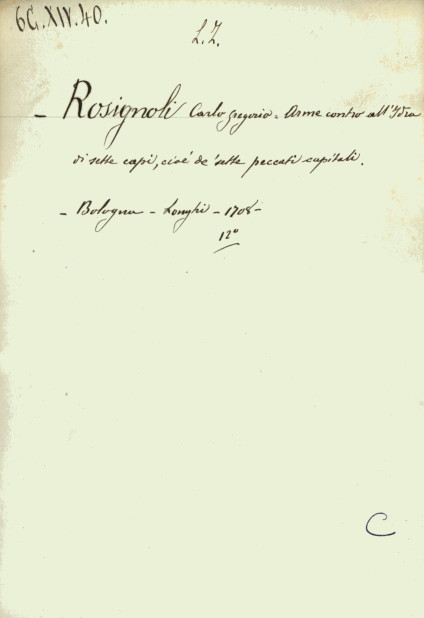 6G.XIV.40.
L.Z.
- Rosignoli Carlo Gregorio = Arme contro all'Idra
di sette capi, cioè de' sette peccati capitali.
- Bologna - Longhi - 1708 -
12°
C